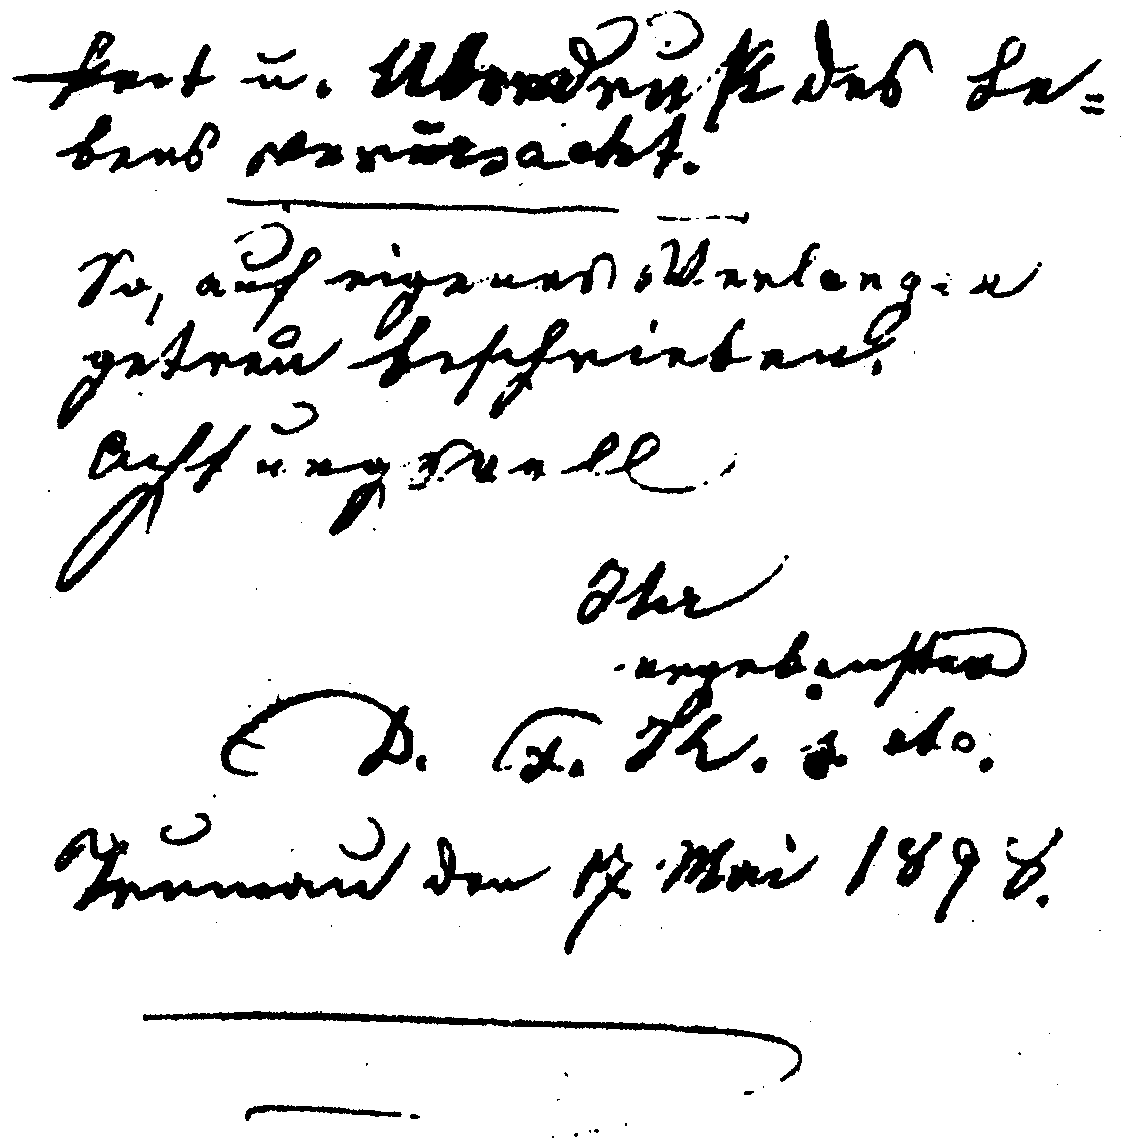 keit u. Überdruß des Le=
bens verursacht.
So, auf eigenes Verlangen
getreu beschrieben.
Achtungsvoll
Ihr
ergebenster
D. F. Th. z etc.
den 17 Mai 1898.